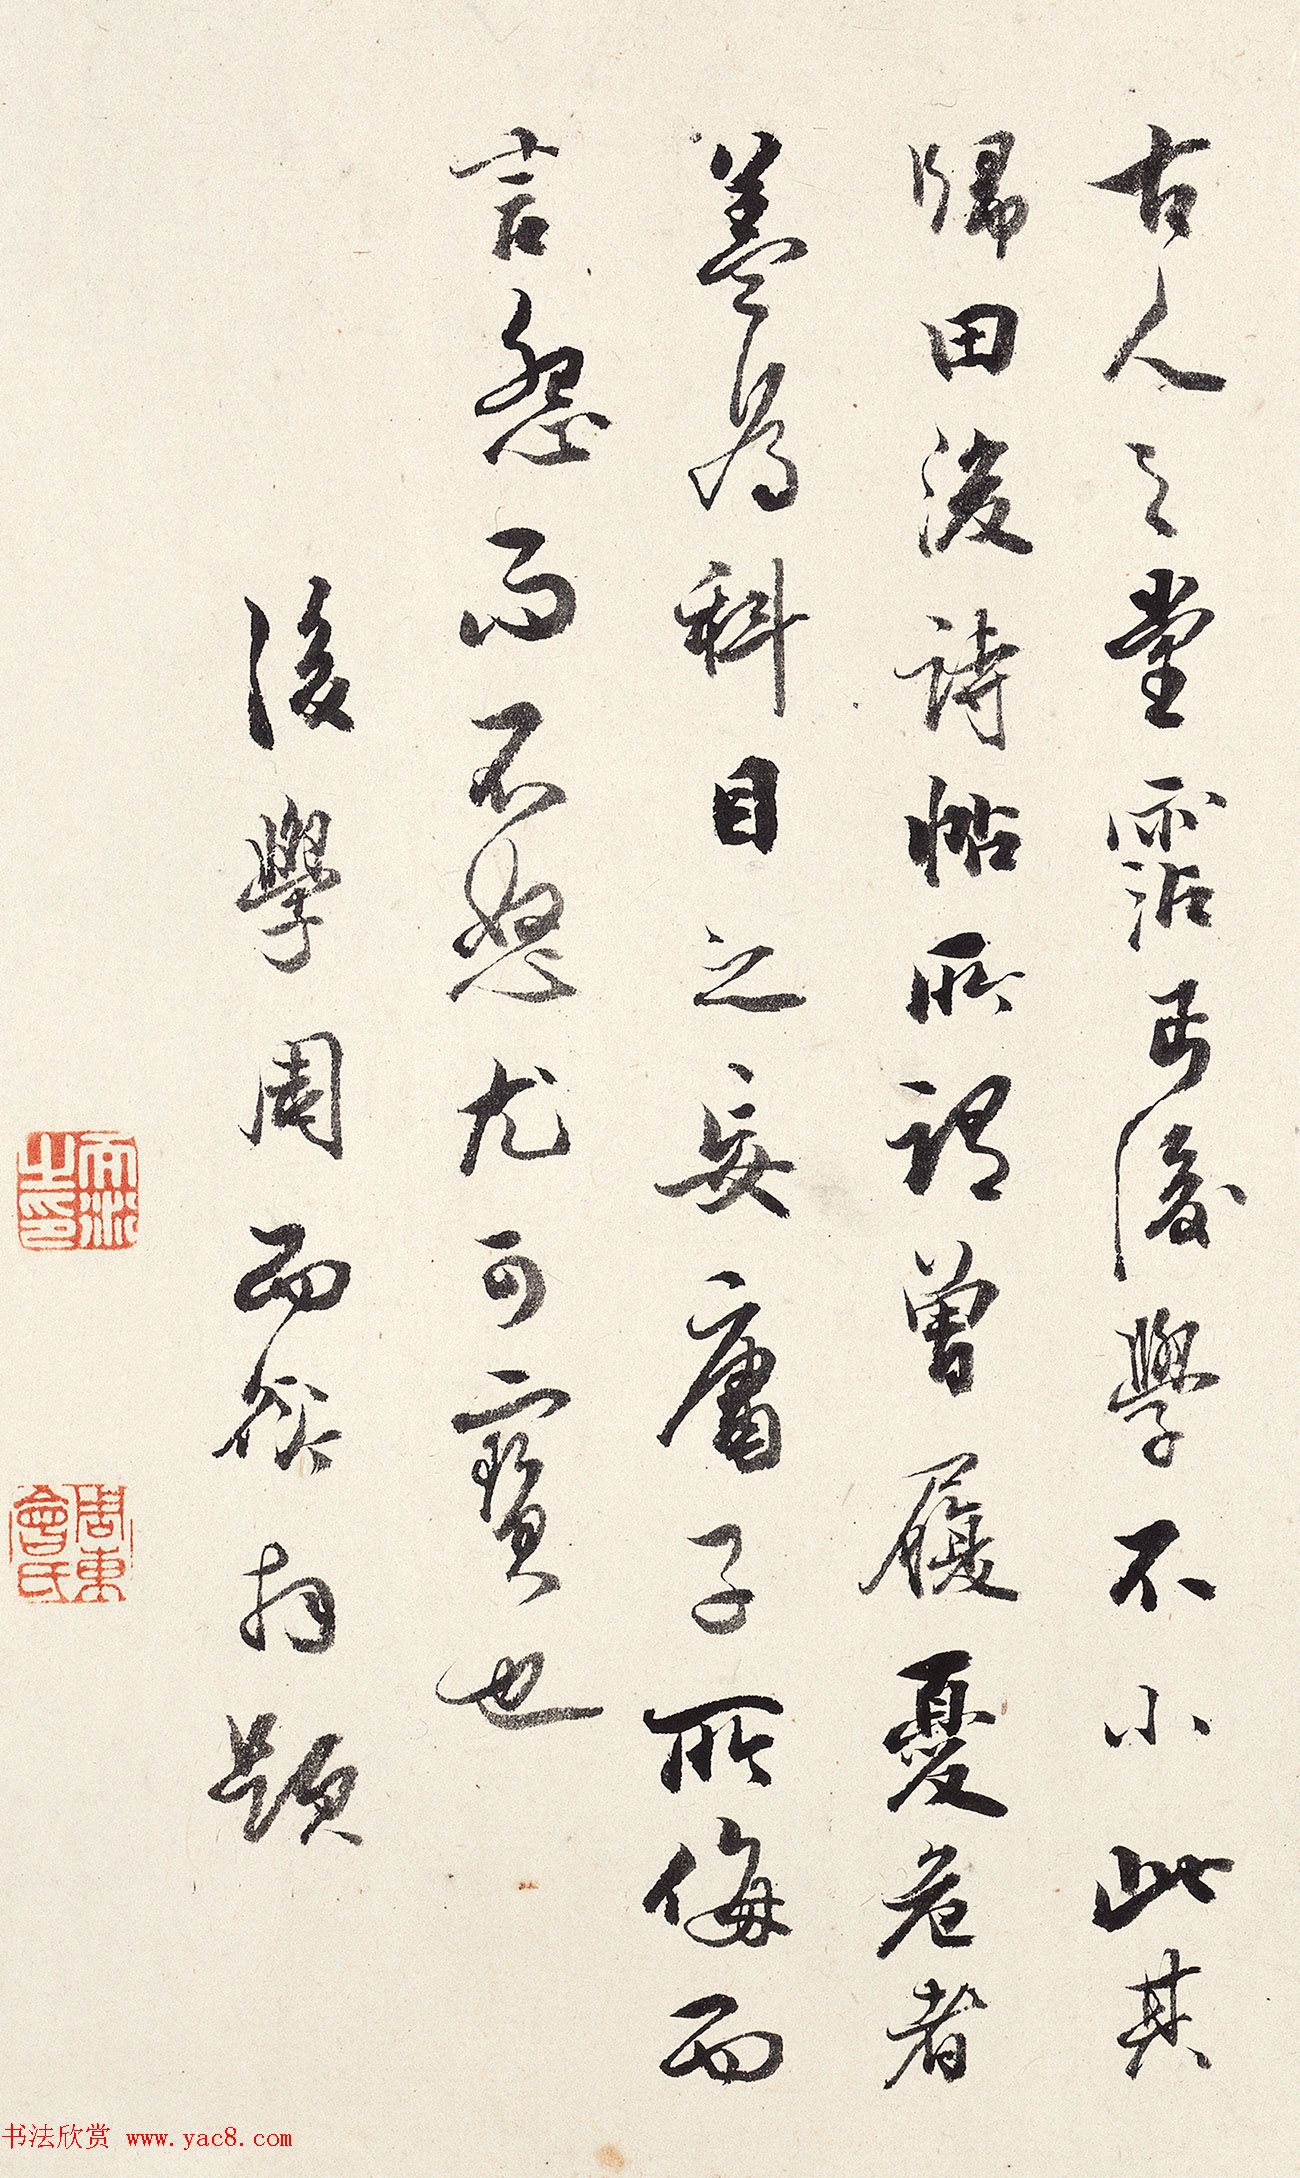 古人之堂霑丐後學不小此其
歸田後詩帖所謂曾履憂危者
蓋為科目之妄庸子所侮而
言怨而不怒尤可寶也
後學周拜題
之印
周東會氏
书法欣赏 www.yac8.com